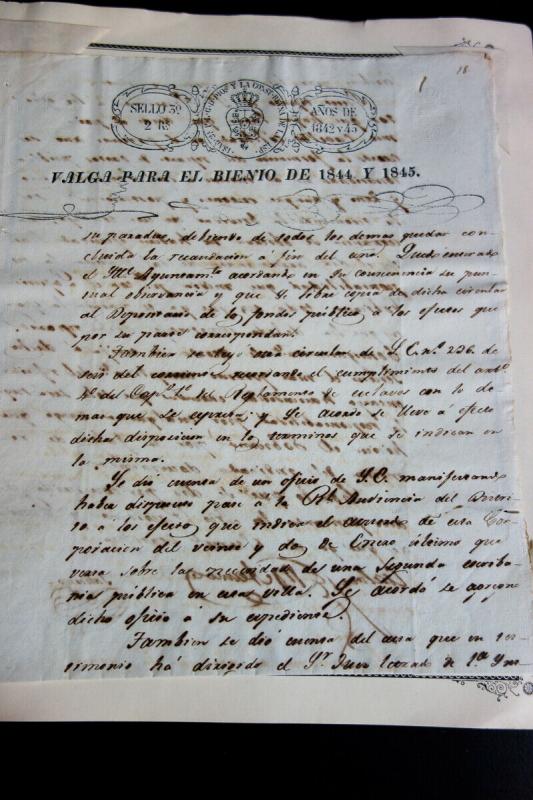 18.
SELLO 3º
2 Rs.
AÑOS DE
1842 Y 43
VALGA PARA EL BIENIO DE 1844 Y 1845.
separadas debiendo de todos los demas quedar con-
cluida la recaudacion a fin del uno. Quedó enterado
el Ylle. Ayuntamto. acordando en su consecuencia su pun-
tual observancia y que se libre copia de dicha circular
al Depositario de los fondos publicos a los efectos que
por su parte correspondan.
Tambien se leyó una circular de S.E. nº 236. de
seis del corriente recordando el cumplimiento del artº
del Reglamento de esclavos con lo de-
mas que se espresa; y se acordó se lleve a efecto
dicha disposicion en los terminos que se indican en
la misma.
Se dió cuenta de un oficio de S.E. manifestando
haber dispuesto pase a la Rl. Audiencia del Distri-
to a los efectos que indica el acuerdo de esta Cor-
poracion del viernes y dos de Enero ultimo que
versa sobre la necesidad de una segunda escriba-
nia publica en esta villa. Se acordó se agregue
dicho oficio a su espediente.
Tambien se dió cuenta del que en tes-
timonio há dirigido el Sr. Juez Letrado de 1ª Yns-